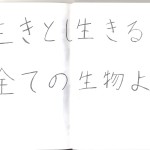 生きとし生きる
全ての生物よ